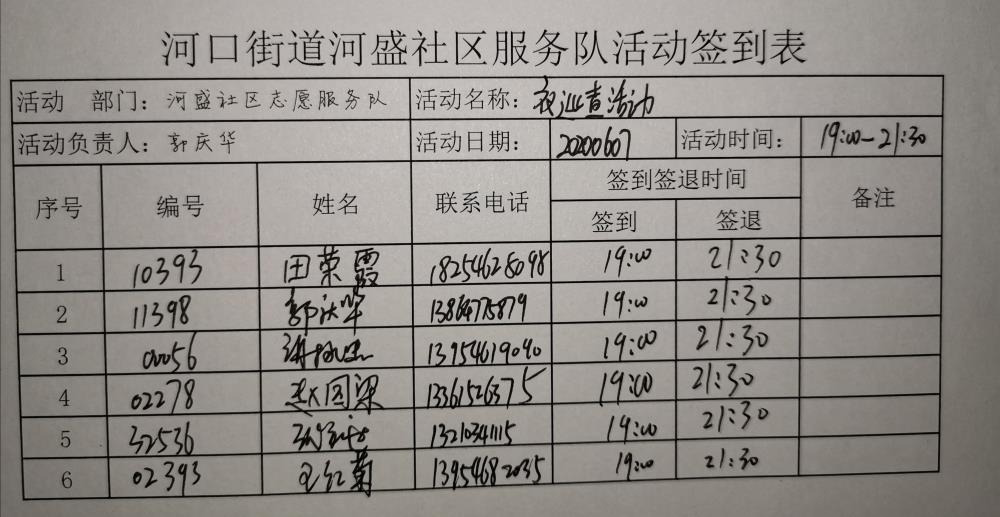 河口街道河盛社区服务队活动签到表
活动 部门：河盛社区志愿服务队 活动名称：夜巡查活动
活动负责人：郭庆华 活动日期：20200607 活动时间：19:00—21:30
序号 编号 姓名 联系电话 签到签退时间 备注
签到 签退
1 10393 田荣霞 18254628098 19:00 21:30
2 11398 郭庆华 13864775879 19:00 21:30
3 00056 13954619040 19:00 21:30
4 02278 赵国梁 13361526375 19:00 21:30
5 32536 13210341115 19:00 21:30
6 02393 王红菊 13954682035 19:00 21:30